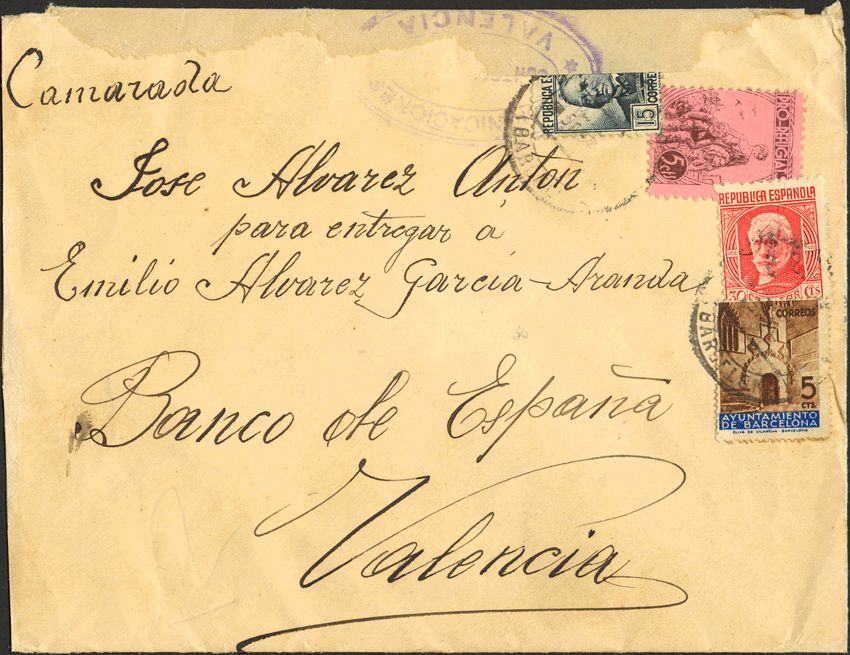 VALENCIA
Camarada
REPUBLICA ES
15
CORRE
5
Jose Alvarez Anton
para entregar á
Emilio Alvarez Garcia-Aranda
REPUBLICA ESPAÑOLA
30
CTS
Banco de España
CORREOS
5
CTS
AYUNTAMIENTO
DE BARCELONA
OLIVA DE VILANOVA-BARCELONA
Valencia